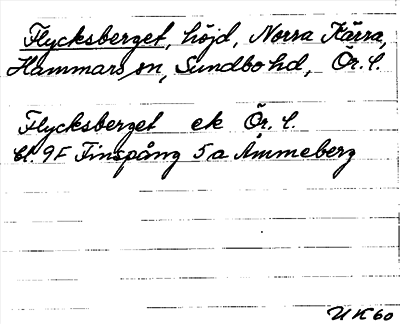 Flycksberget, höjd, Norra Kärra,
Hammars sn, Sundbo hd, Ör. l.
Flycksberget ek Ör. l.
bl. 9F Finspång 5a Åmmeberg
UK60